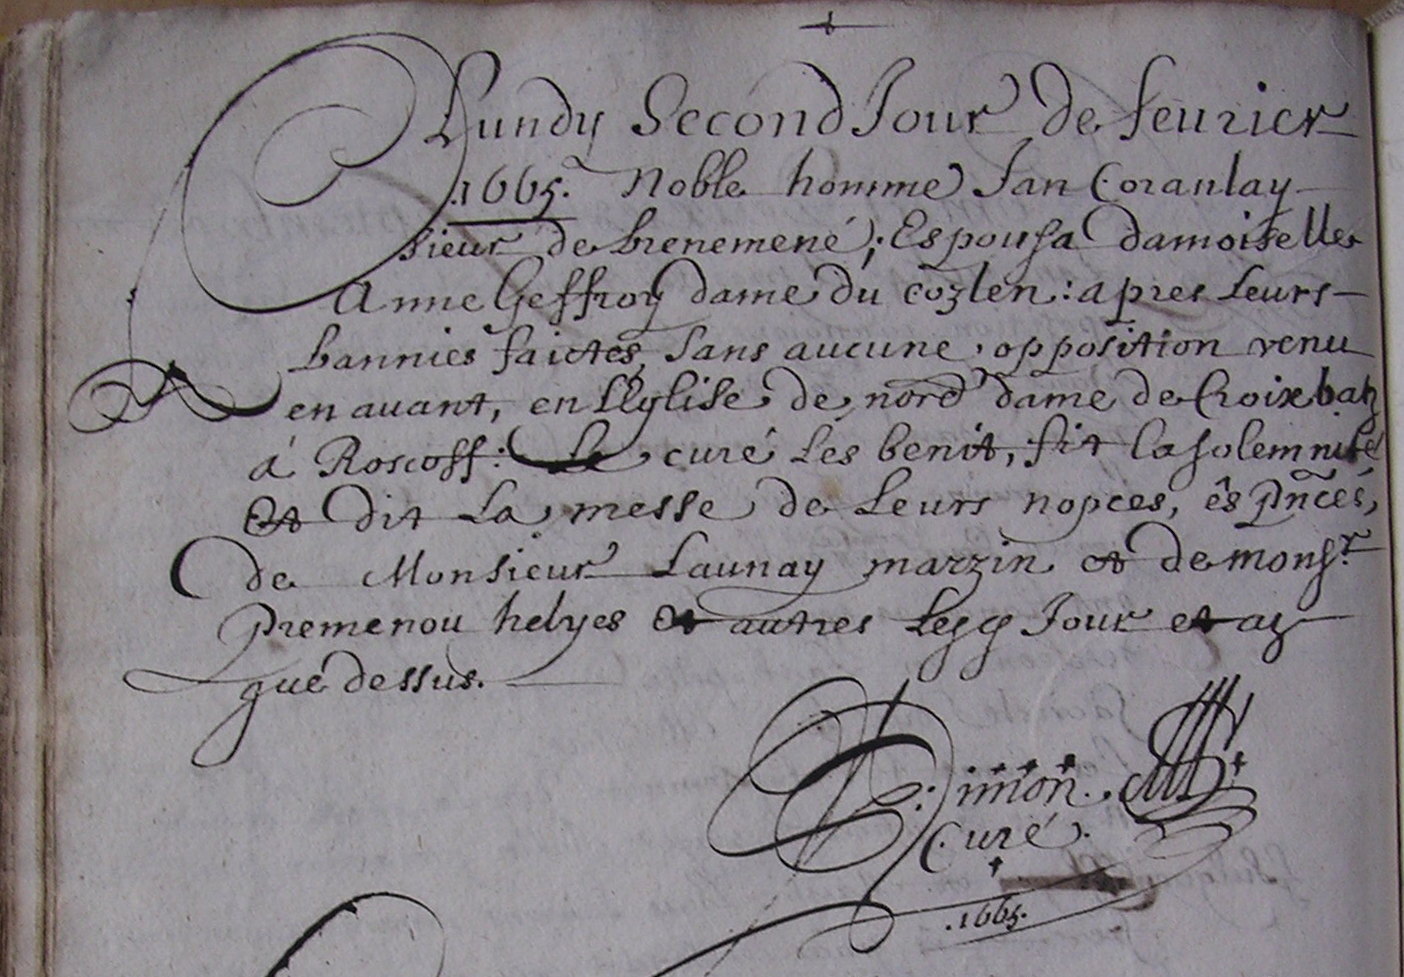 Lundy Second Jour de feurier
.1665. Noble homme Jan Coranlay
sieur de brenemené; Espousa damoiselle
Anne Geffroy dame du cozlen: apres Leurs
bannies faictes sans aucune opposition venu
en auant, en L'Eglise de nord dame de Croixbatz
á Roscoff: Le curé Les benit, fit la solemnité
et dit La messe de Leurs nopces, ês pñces,
de Monsieur Launay marzin et de monsr
Premenou helyes et autres Jour et
que dessus.
Simon.
Curé.
.1665.